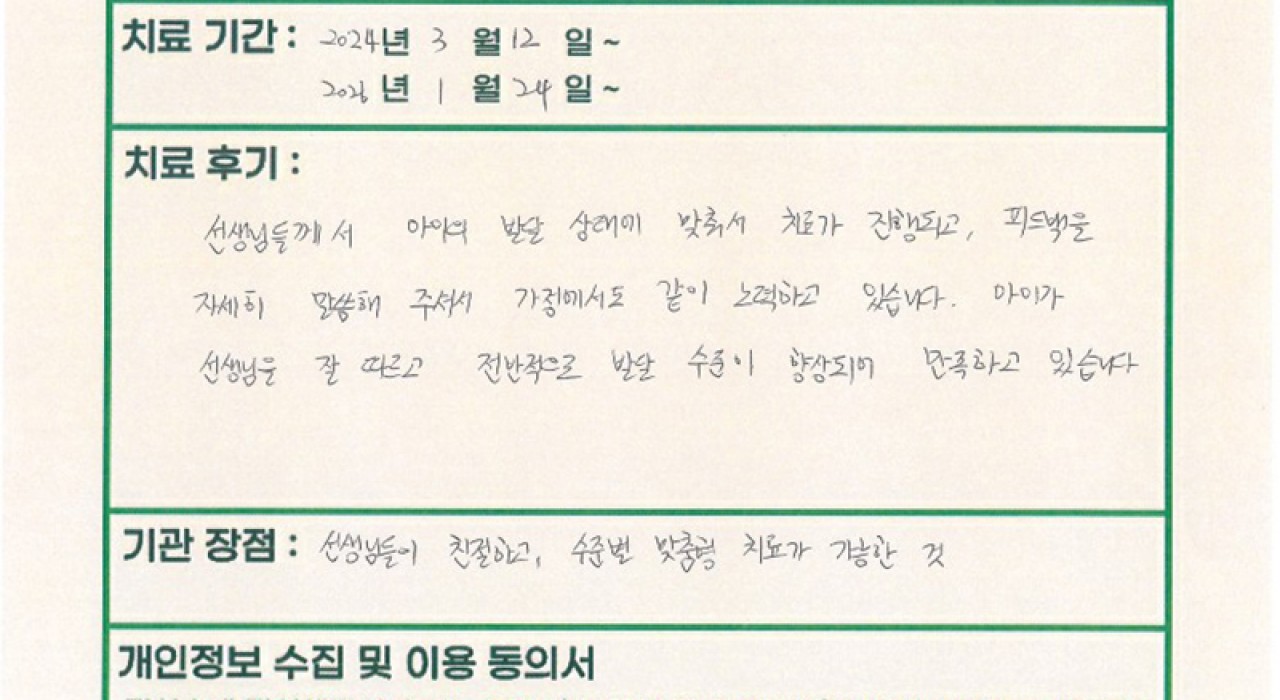 치료 기간 : 2024년 3 월 12 일 ~
2026 년 1 월 24 일 ~
치료 후기 :
선생님들께서 아이의 발달 상태에 맞춰서 치료가 진행되고, 피드백을
자세히 말씀해 주셔서 가정에서도 같이 노력하고 있습니다. 아이가
선생님을 잘 따르고 전반적으로 발달 수준이 향상되어 만족하고 있습니다
기관 장점 : 선생님들이 친절하고, 수준별 맞춤형 치료가 가능한 것
개인정보 수집 및 이용 동의서